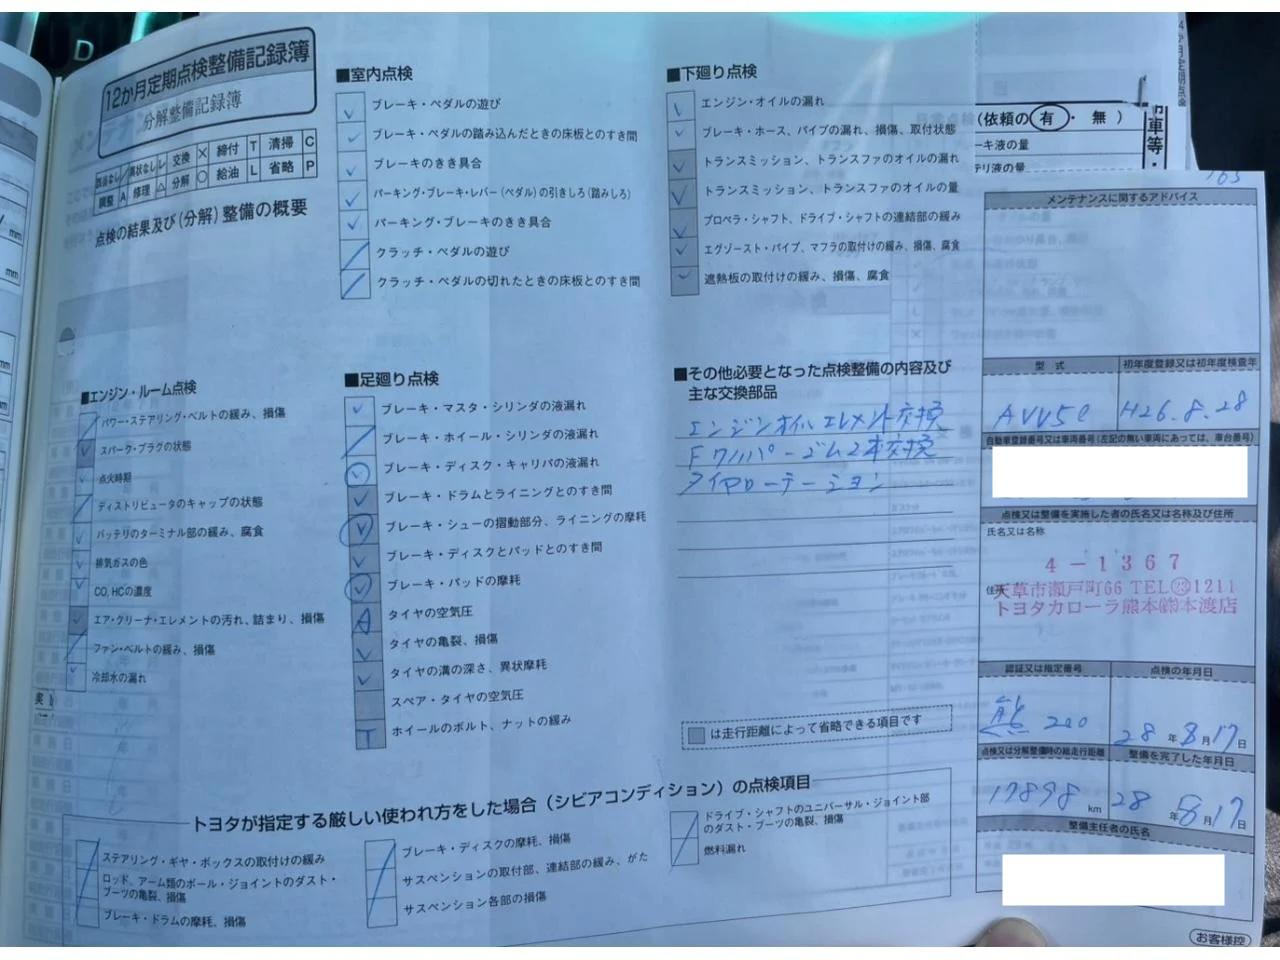 D
12か月定期点検整備記録簿
分解整備記録簿
該当なし / 異状なし レ 交換 × 締付 T 清掃 C
調整 A 修理 △ 分解 ○ 給油 L 省略 P
点検の結果及び(分解)整備の概要
■室内点検
ブレーキ・ペダルの遊び
ブレーキ・ペダルの踏み込んだときの床板とのすき間
ブレーキのきき具合
パーキング・ブレーキ・レバー(ペダル)の引きしろ(踏みしろ)
パーキング・ブレーキのきき具合
クラッチ・ペダルの遊び
クラッチ・ペダルの切れたときの床板とのすき間
■下廻り点検
エンジン・オイルの漏れ
ブレーキ・ホース、パイプの漏れ、損傷、取付状態
トランスミッション、トランスファのオイルの漏れ
トランスミッション、トランスファのオイルの量
プロペラ・シャフト、ドライブ・シャフトの連結部の緩み
エグゾースト・パイプ、マフラの取付けの緩み、損傷、腐食
遮熱板の取付けの緩み、損傷、腐食
(依頼の 有 ・ 無 )
ーキ液の量
テリ液の量
車等・
■エンジン・ルーム点検
パワー・ステアリング・ベルトの緩み、損傷
スパーク・プラグの状態
点火時期
ディストリビュータのキャップの状態
バッテリのターミナル部の緩み、腐食
排気ガスの色
CO、HCの濃度
エア・クリーナ・エレメントの汚れ、詰まり、損傷
ファン・ベルトの緩み、損傷
冷却水の漏れ
■足廻り点検
ブレーキ・マスタ・シリンダの液漏れ
ブレーキ・ホイール・シリンダの液漏れ
ブレーキ・ディスク・キャリパの液漏れ
ブレーキ・ドラムとライニングとのすき間
ブレーキ・シューの摺動部分、ライニングの摩耗
ブレーキ・ディスクとパッドとのすき間
ブレーキ・パッドの摩耗
A タイヤの空気圧
タイヤの亀裂、損傷
タイヤの溝の深さ、異状摩耗
スペア・タイヤの空気圧
T ホイールのボルト、ナットの緩み
■その他必要となった点検整備の内容及び
主な交換部品
エンジンオイルエレメント交換
Fワイパーゴム2本交換
タイヤローテーション
は走行距離によって省略できる項目です
トヨタが指定する厳しい使われ方をした場合(シビアコンディション)の点検項目
ステアリング・ギヤ・ボックスの取付けの緩み
ロッド、アーム類のボール・ジョイントのダスト・
ブーツの亀裂、損傷
ブレーキ・ドラムの摩耗、損傷
ブレーキ・ディスクの摩耗、損傷
サスペンションの取付部、連結部の緩み、がた
サスペンション各部の損傷
ドライブ・シャフトのユニバーサル・ジョイント部
のダスト・ブーツの亀裂、損傷
燃料漏れ
メンテナンスに関するアドバイス
型 式
初年度登録又は初年度検査年
AVV50
H26.8.28
自動車登録番号又は車両番号(左記の無い車両にあっては、車台番号)
点検又は整備を実施した者の氏名又は名称及び住所
氏名又は名称
4-1367
天草市瀬戸町66 TEL㉓1211
トヨタカローラ熊本㈱本渡店
認証又は指定番号
点検の年月日
熊 200
28 年 8 月 17 日
点検又は分解整備時の総走行距離
整備を完了した年月日
17898 km
28 年 8 月 17 日
整備主任者の氏名
お客様控